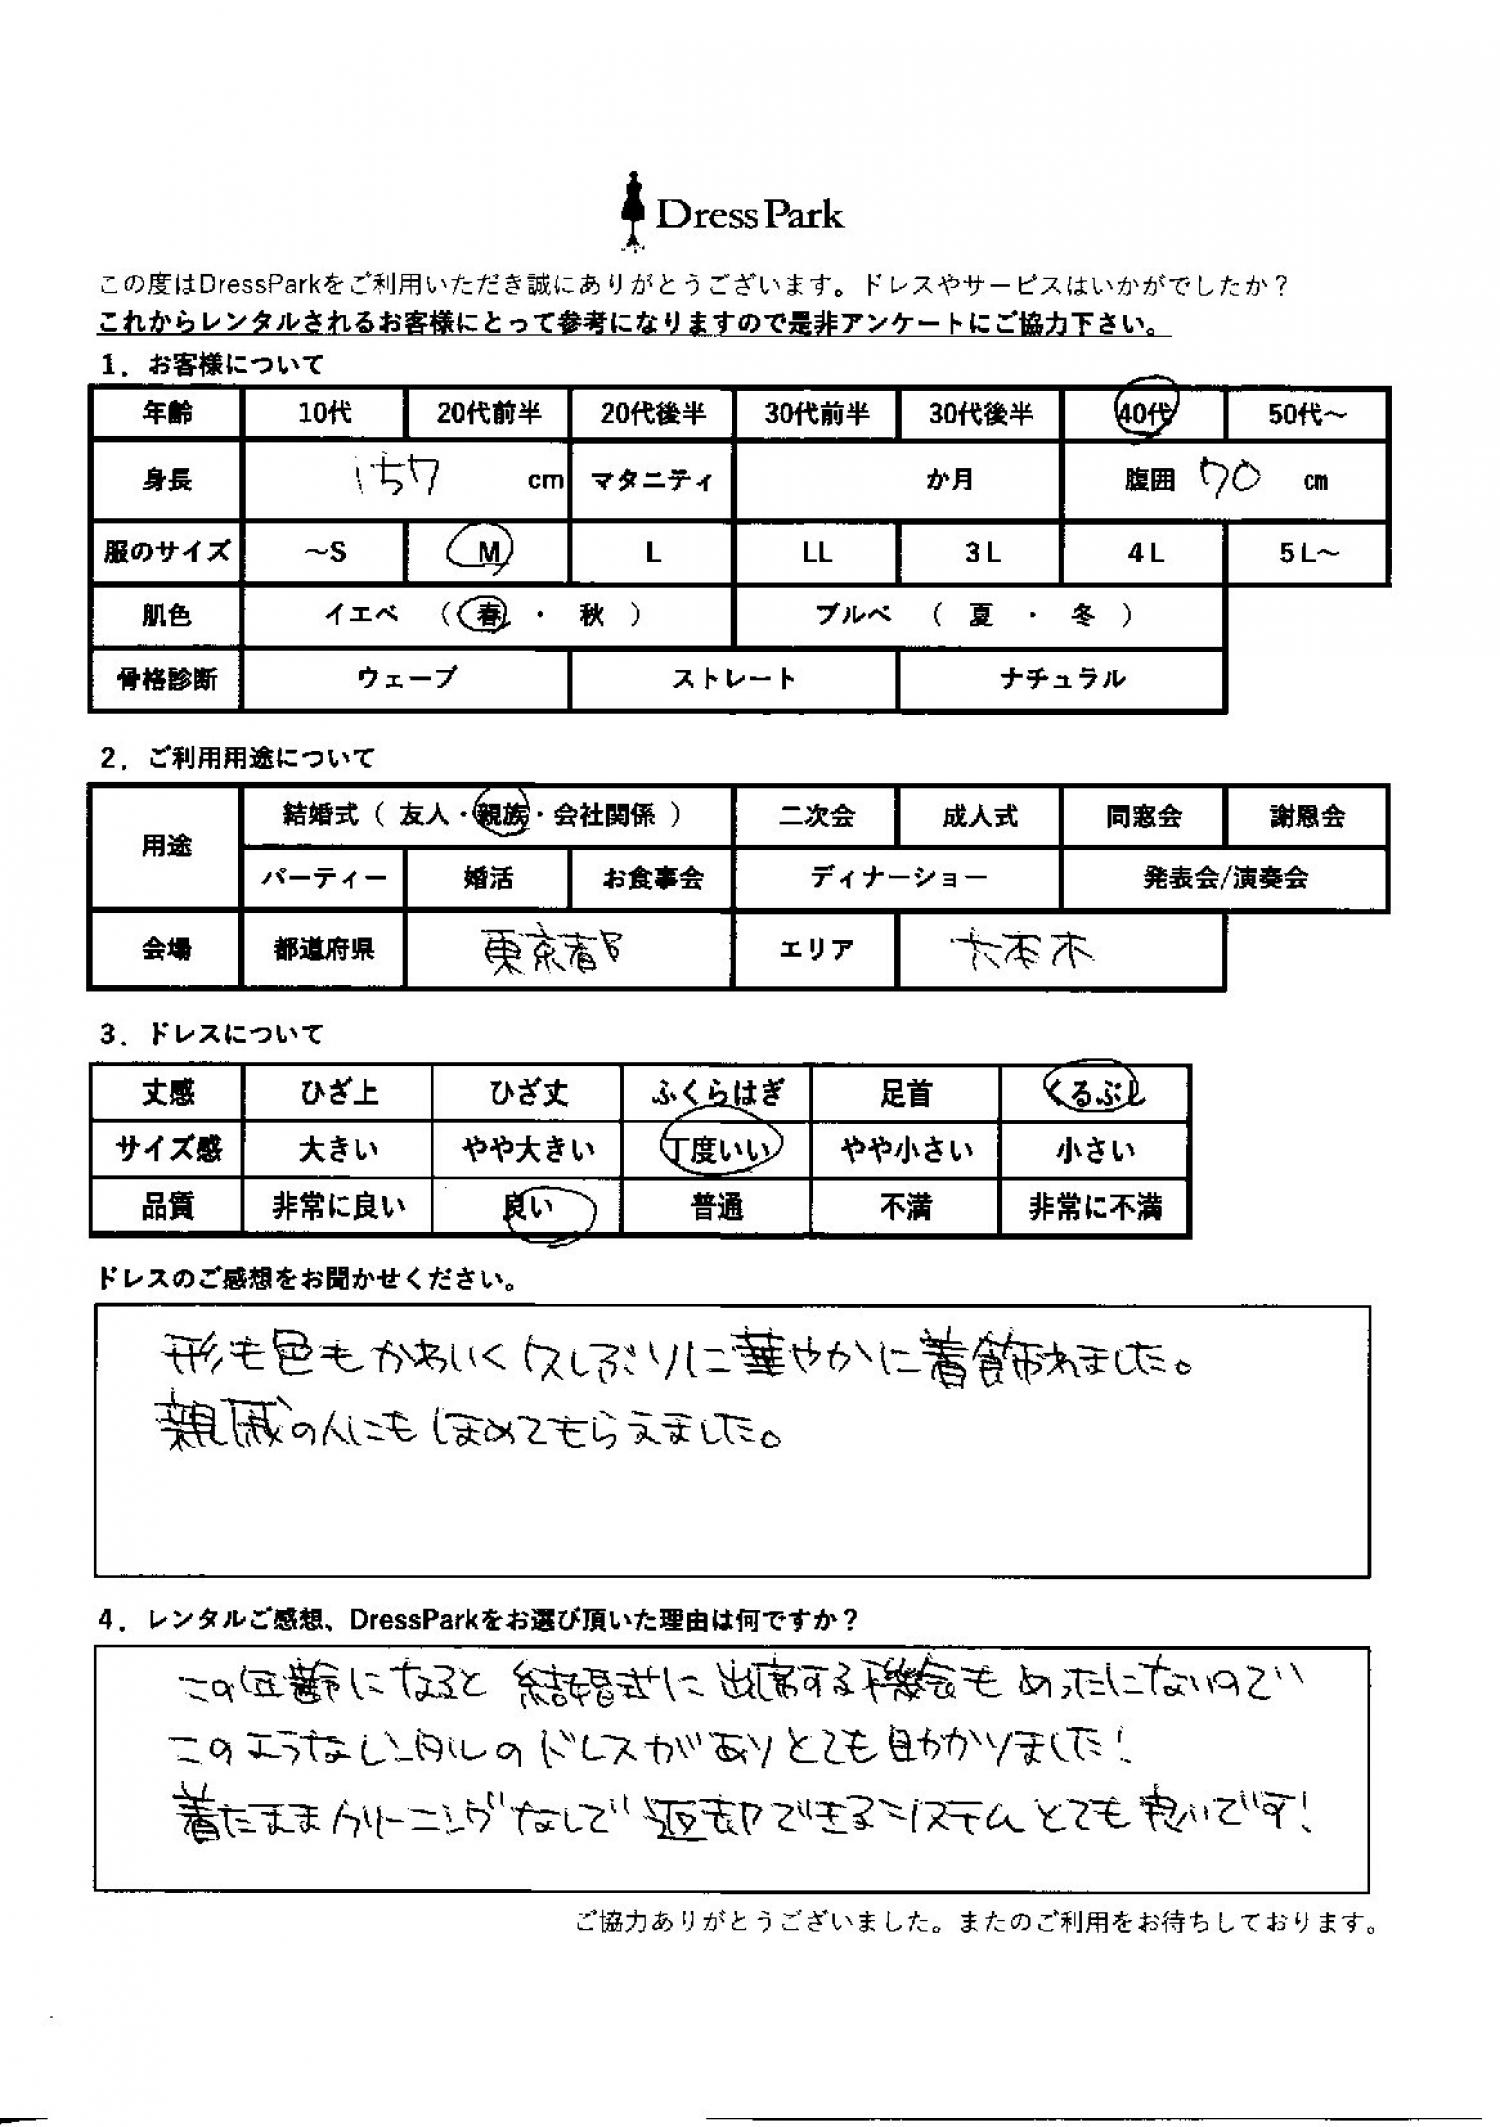 DressPark
この度はDressParkをご利用いただき誠にありがとうございます。ドレスやサービスはいかがでしたか？
これからレンタルされるお客様にとって参考になりますので是非アンケートにご協力下さい。
1．お客様について
年齢 10代 20代前半 20代後半 30代前半 30代後半 40代 50代～
身長 157 cm マタニティ か月 腹囲 70 cm
服のサイズ ～S M L LL 3L 4L 5L～
肌色 イエベ （ 春 ・ 秋 ） ブルベ （ 夏 ・ 冬 ）
骨格診断 ウェーブ ストレート ナチュラル
2．ご利用用途について
用途 結婚式（ 友人・親族・会社関係 ） 二次会 成人式 同窓会 謝恩会
パーティー 婚活 お食事会 ディナーショー 発表会/演奏会
会場 都道府県 東京都 エリア 六本木
3．ドレスについて
丈感 ひざ上 ひざ丈 ふくらはぎ 足首 くるぶし
サイズ感 大きい やや大きい 丁度いい やや小さい 小さい
品質 非常に良い 良い 普通 不満 非常に不満
ドレスのご感想をお聞かせください。
形も色もかわいく久しぶりに華やかに着飾れました。
親戚の人にもほめてもらえました。
4．レンタルご感想、DressParkをお選び頂いた理由は何ですか？
この年齢になると結婚式に出席する機会もめったにないので
このようなレンタルのドレスがありとても助かりました！
着たままクリーニングなしで返却できるシステムとても良いです！
ご協力ありがとうございました。またのご利用をお待ちしております。